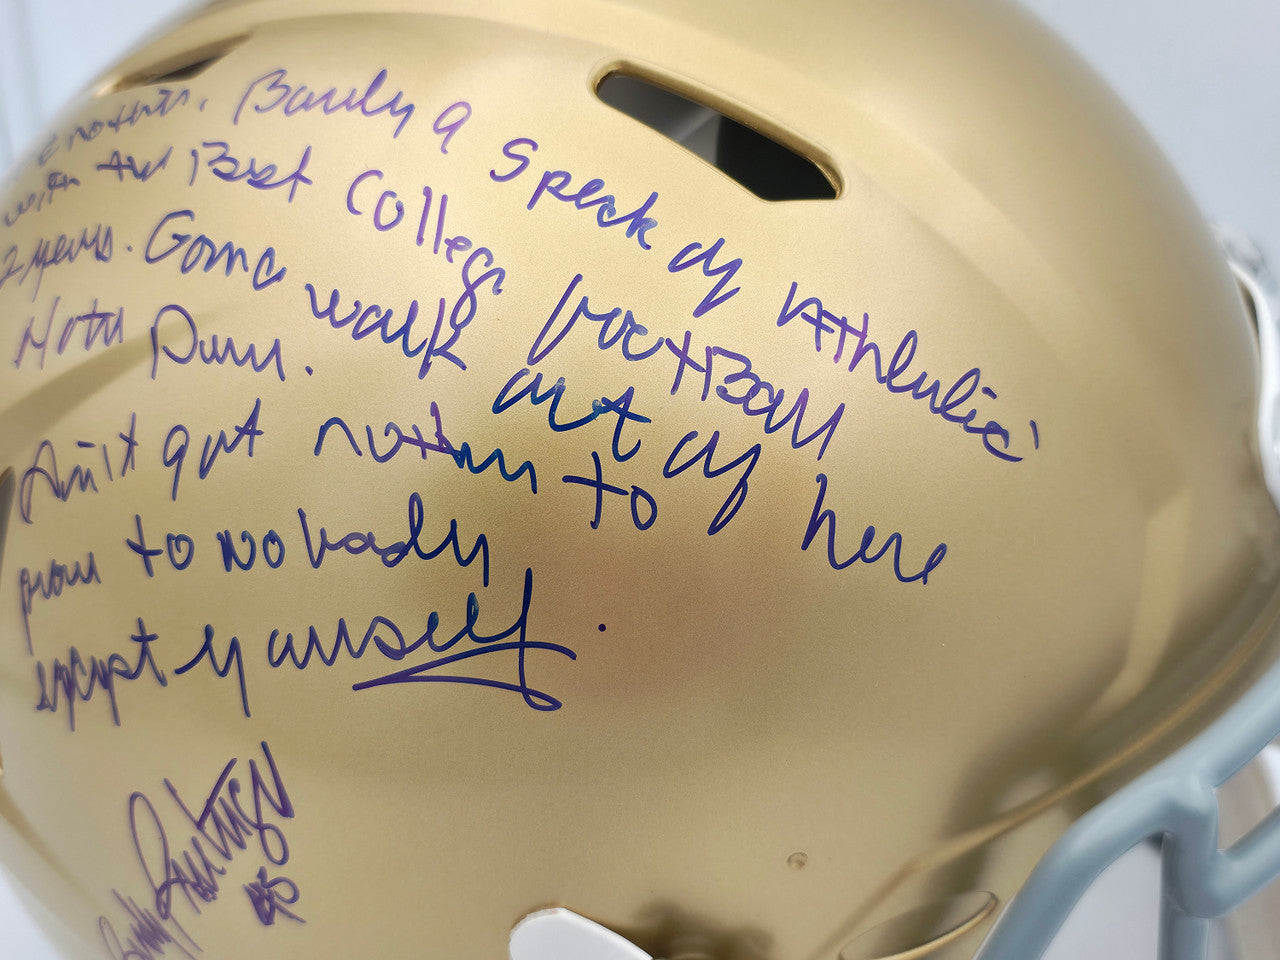 a nothin. Barely a speck of Athletic
with the Best College football
2 years. Gonna walk out of here
Notre Dame.
Ain't got nothin to
prove to Nobody
except yourself.
Rudy Ruettiger
#45